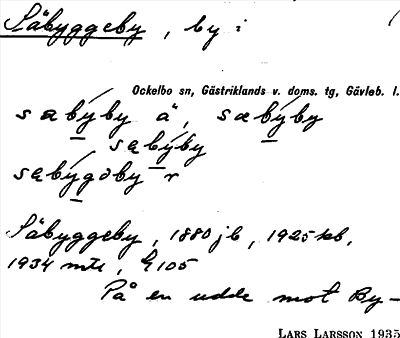 Säbyggeby, by i
Ockelbo sn, Gästriklands v. doms. tg, Gävleb. l.
sabýby ä, sæbýby
sąbýby
sąbýgoby r
Säbyggeby, 1880 jb, 1925 kb,
1934 mtl, G105
På en udde mot By-
LARS LARSSON 1935